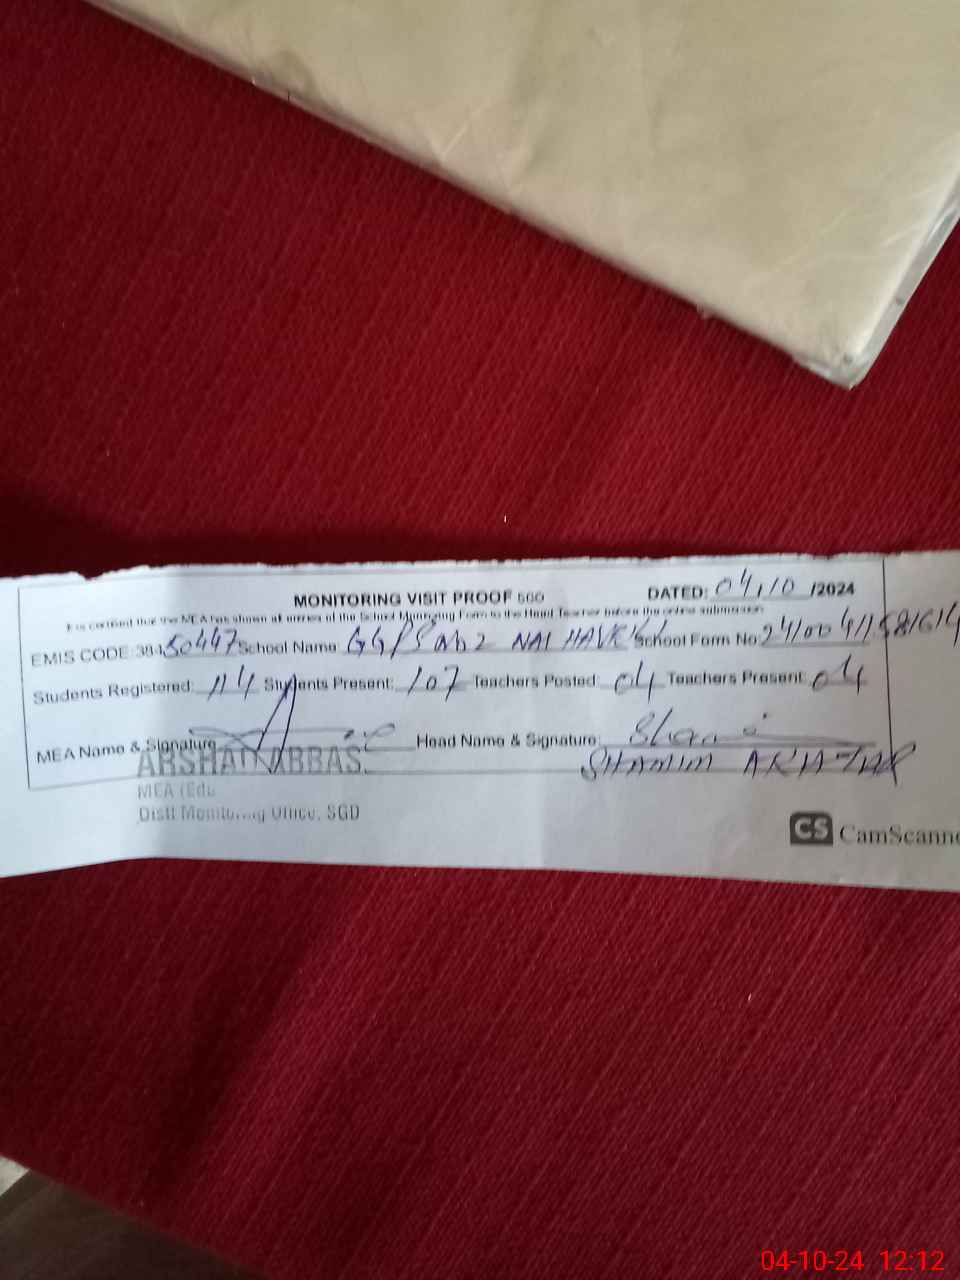 MONITORING VISIT PROOF DATED: 04/10 /2024
It is certified that the MEA has shown all entries of the School Monitoring Form to the Head Teacher before the online submission
EMIS CODE: 38450447 School Name GGPS NAI School Form No:
Students Registered: 114 Students Present: 107 Teachers Posted: 04 Teachers Present: 04
MEA Name & Signature Head Name & Signature:
ARSHAD ABBAS SHAMIM AKHTAR
MEA (Edu
Distt Monitoring Office, SGD
CS CamScanne
04-10-24 12:12